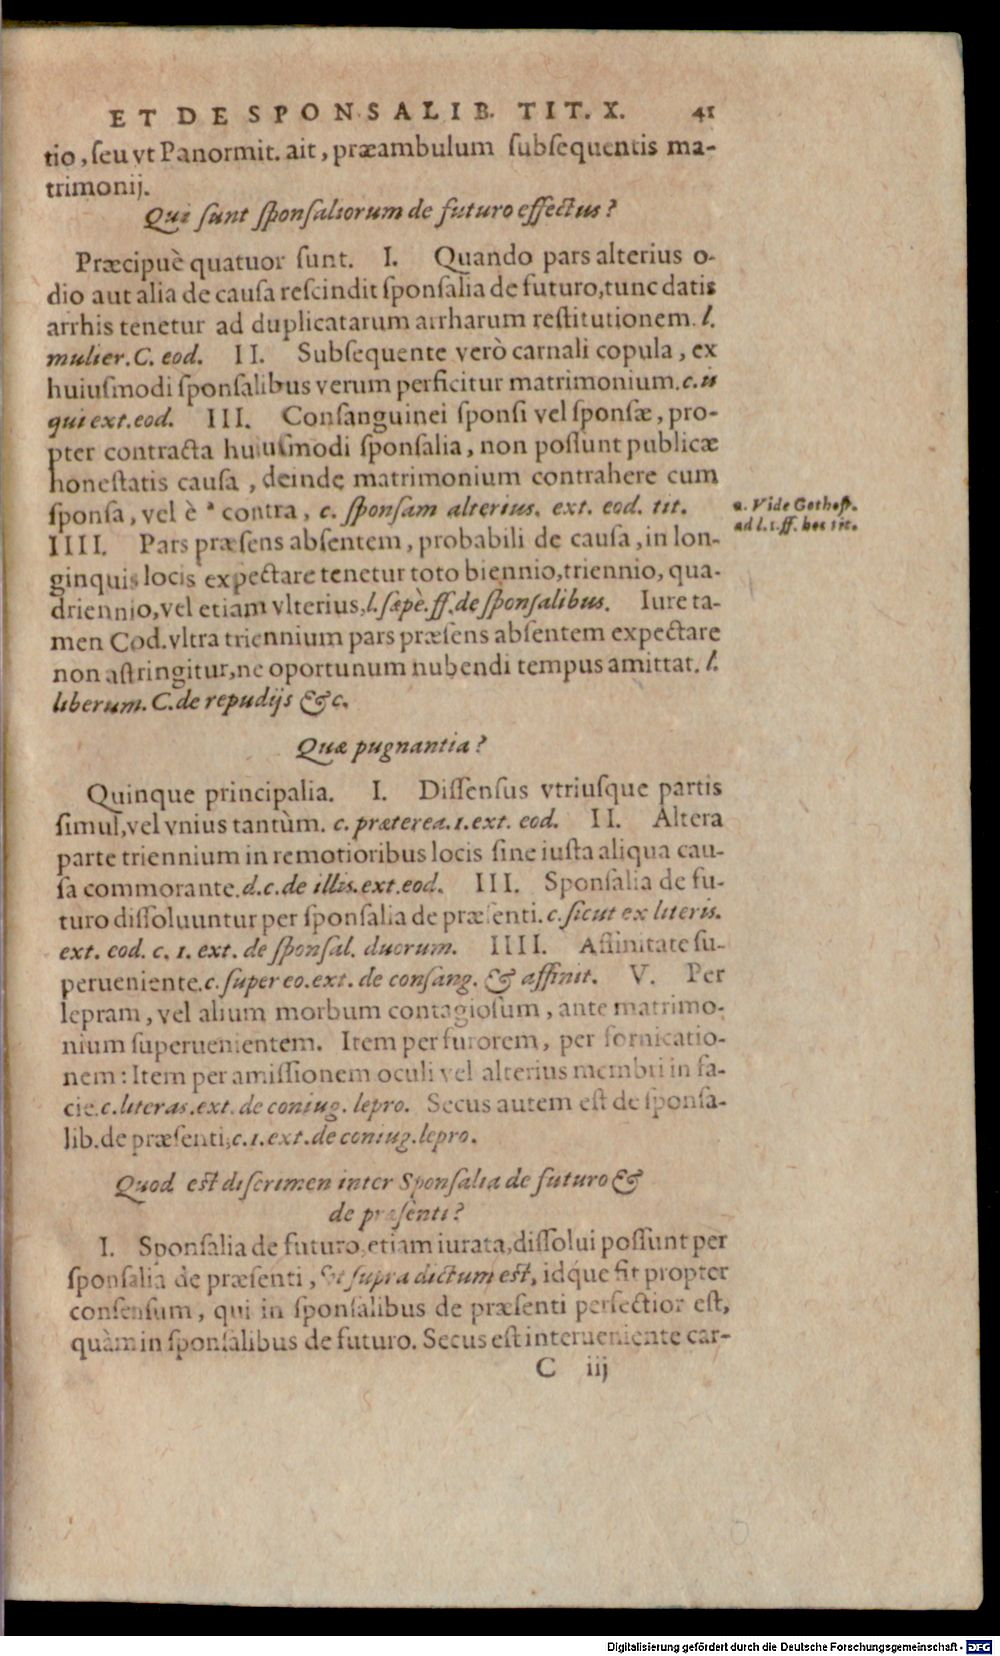 ET DE SPONSALIB. TIT. X. 41
tio, ſeu vt Panormit. ait, præambulum ſubſequentis ma-
trimonij.
Qui ſunt ſponſaliorum de futuro effectus?
Præcipuè quatuor ſunt. I. Quando pars alterius o-
dio aut alia de cauſa reſcindit ſponſalia de futuro, tunc datis
arrhis tenetur ad duplicatarum arrharum reſtitutionem. l.
mulier. C. eod. II. Subſequente verò carnali copula, ex
huiuſmodi ſponſalibus verum perficitur matrimonium. c. is
qui ext. eod. III. Conſanguinei ſponſi vel ſponſæ, pro-
pter contracta huiuſmodi ſponſalia, non poſſunt publicæ
honeſtatis cauſa, deinde matrimonium contrahere cum
ſponſa, vel è a contra, c. ſponſam alterius. ext. eod. tit.
a. Vide Gothof.
ad l. 1. ff. hoc tit.
IIII. Pars præſens abſentem, probabili de cauſa, in lon-
ginquis locis expectare tenetur toto biennio, triennio, qua-
driennio, vel etiam vlterius, l. ſæpè. ff. de ſponſalibus. Iure ta-
men Cod. vltra triennium pars præſens abſentem expectare
non aſtringitur, ne oportunum nubendi tempus amittat. l.
liberum. C. de repudijs &c.
Quæ pugnantia?
Quinque principalia. I. Diſſenſus vtriuſque partis
ſimul, vel vnius tantùm. c. præterea. 1. ext. eod. II. Altera
parte triennium in remotioribus locis ſine iuſta aliqua cau-
ſa commorante. d. c. de illis. ext. eod. III. Sponſalia de fu-
turo diſſoluuntur per ſponſalia de præſenti. c. ſicut ex literis.
ext. eod. c. 1. ext. de ſponſal. duorum. IIII. Affinitate ſu-
perueniente. c. ſuper eo. ext. de conſang. & affinit. V. Per
lepram, vel alium morbum contagioſum, ante matrimo-
nium ſuperuenientem. Item per furorem, per fornicatio-
nem: Item per amiſſionem oculi vel alterius membri in fa-
cie. c. literas. ext. de coniug. lepro. Secus autem eſt de ſponſa-
lib. de præſenti, c. 1. ext. de coniug. lepro.
Quod eſt diſcrimen inter Sponſalia de futuro &
de præſenti?
I. Sponſalia de futuro, etiam iurata, diſſolui poſſunt per
ſponſalia de præſenti, vt ſupra dictum eſt, idq́ue fit propter
conſenſum, qui in ſponſalibus de præſenti perfectior eſt,
quàm in ſponſalibus de futuro. Secus eſt interueniente car-
C iij
Digitalisierung gefördert durch die Deutsche Forschungsgemeinschaft - DFG